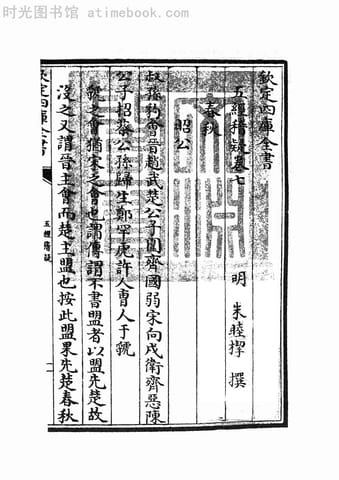 时光图书馆 · atimebook.com
欽定四庫全書
五經稽疑卷七
明 朱睦㮮 撰
春秋
昭公
叔孫豹會晉趙武楚公子圍齊國弱宋向戌衛齊惡陳
公子招蔡公孫歸生鄭罕虎許人曹人于虢
虢之會猶宋之會也謂傳謂不書盟者以盟先楚故
沒之又謂晉主會而楚主盟也按此盟果先楚春秋
欽定四庫全書
五經稽疑
一